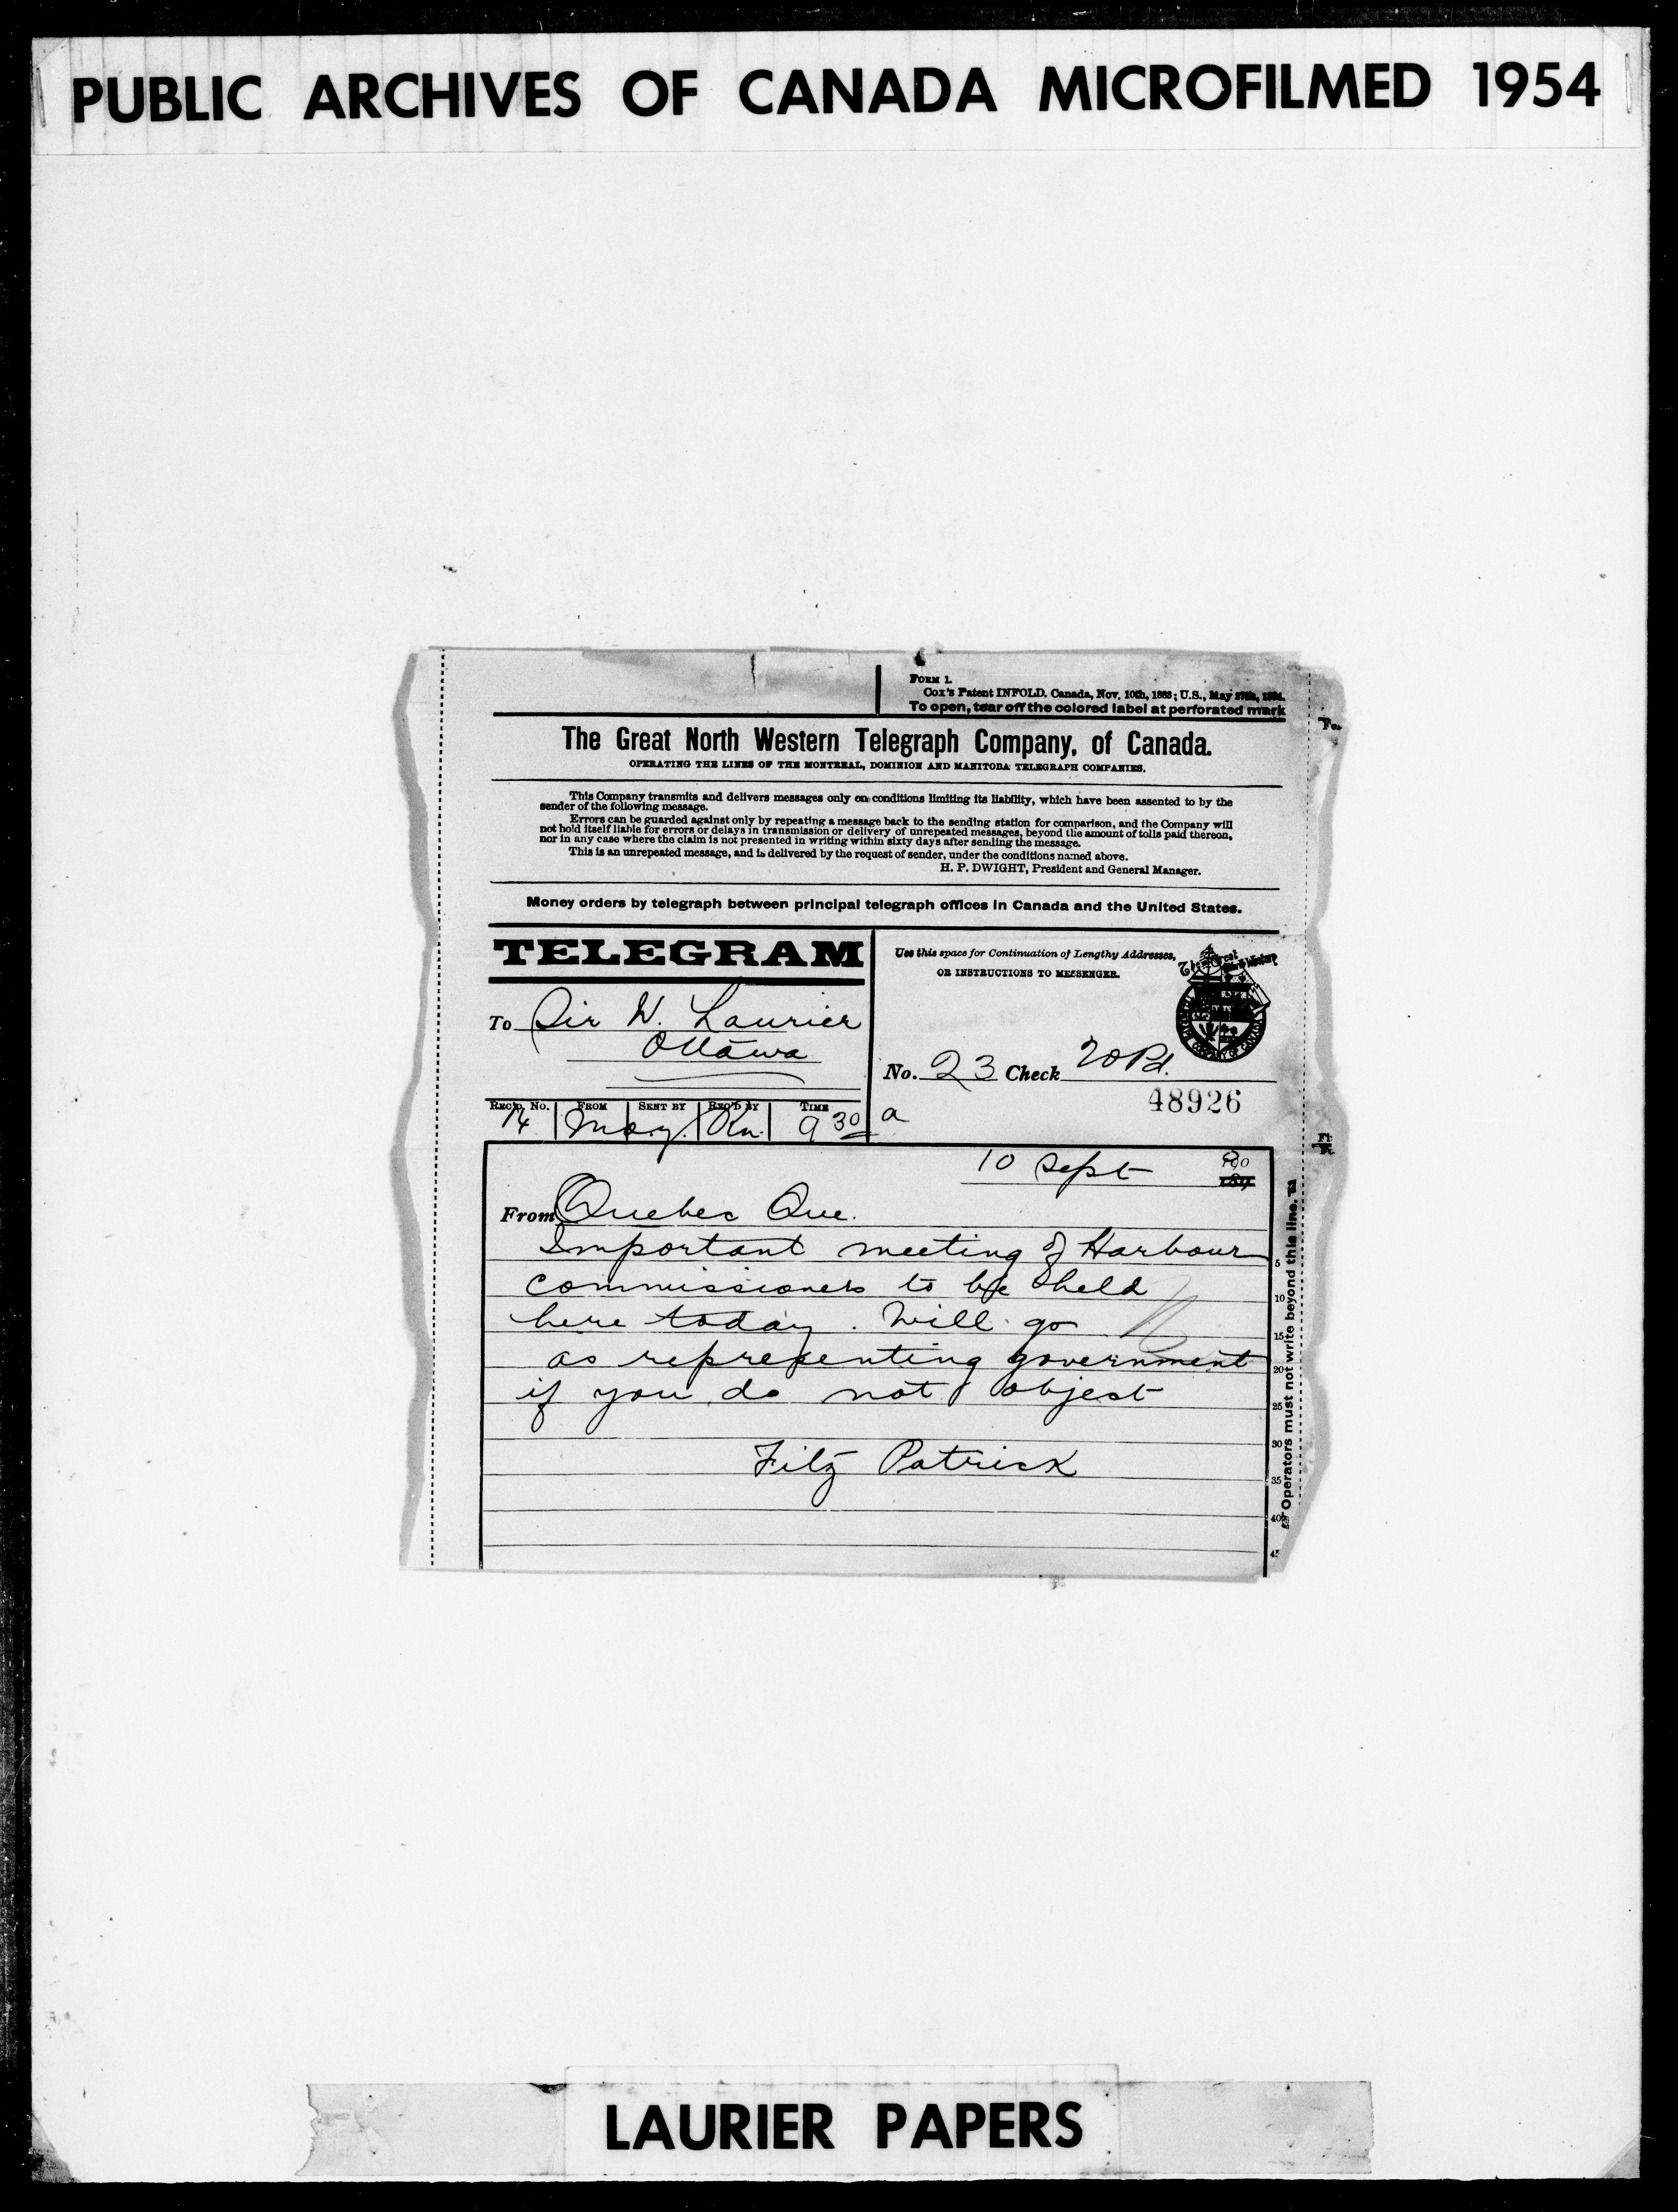 PUBLIC ARCHIVES OF CANADA MICROFILMED 1954
FORM 1.
Cox's Patent INFOLD. Canada, Nov. 10th, 1883; U.S., May 27th,
To open, tear off the colored label at perforated mark
The Great North Western Telegraph Company, of Canada.
OPERATING THE LINES OF THE MONTREAL, DOMINION AND MANITOBA TELEGRAPH COMPANIES.
This Company transmits and delivers messages only on conditions limiting its liability, which have been assented to by the
sender of the following message.
Errors can be guarded against only by repeating a message back to the sending station for comparison, and the Company will
not hold itself liable for errors or delays in transmission or delivery of unrepeated messages, beyond the amount of tolls paid thereon,
nor in any case where the claim is not presented in writing within sixty days after sending the message.
This is an unrepeated message, and is delivered by the request of sender, under the conditions named above.
H. P. DWIGHT, President and General Manager.
Money orders by telegraph between principal telegraph offices in Canada and the United States.
TELEGRAM
Use this space for Continuation of Lengthy Addresses,
OR INSTRUCTIONS TO MESSENGER.
The Great North Western
To Sir W. Laurier
Ottawa
No. 23 Check 20 Pd.
48926
REC'D. No. FROM SENT BY REC'D BY TIME
14 9 30 a
10 Sept
From Quebec Que.
Important meeting of Harbour
commissioners to be held
here today. Will go
as representing government
if you do not object
Fitz Patrick
5
10
15
20
25
30
35
40
45
Operators must not write beyond this line.
LAURIER PAPERS